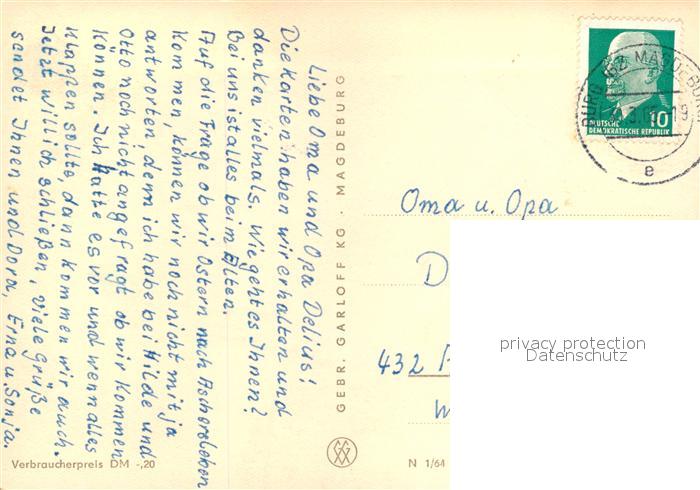 Liebe Oma und Opa Delius!
Die Karten haben wir erhalten und
danken vielmals. Wie geht es Ihnen?
Bei uns ist alles beim Alten.
Auf die Frage ob wir Ostern nach Aschersleben
kommen, können wir noch nicht mit ja
antworten, denn ich habe bei Hilde und
Otto noch nicht angefragt ob wir kommen
können. Ich hatte es vor und wenn alles
klappen sollte, dann kommen wir auch.
Jetzt will ich schließen, viele Grüße
sendet Ihnen und Dora, Erna u. Sonja.
Verbraucherpreis DM -,20
GEBR. GARLOFF KG · MAGDEBURG
N 1/64
BURG (BZ MAGDEBURG
e
10
DEUTSCHE
DEMOKRATISCHE REPUBLIK
Oma u. Opa
D
432
W
privacy protection
Datenschutz